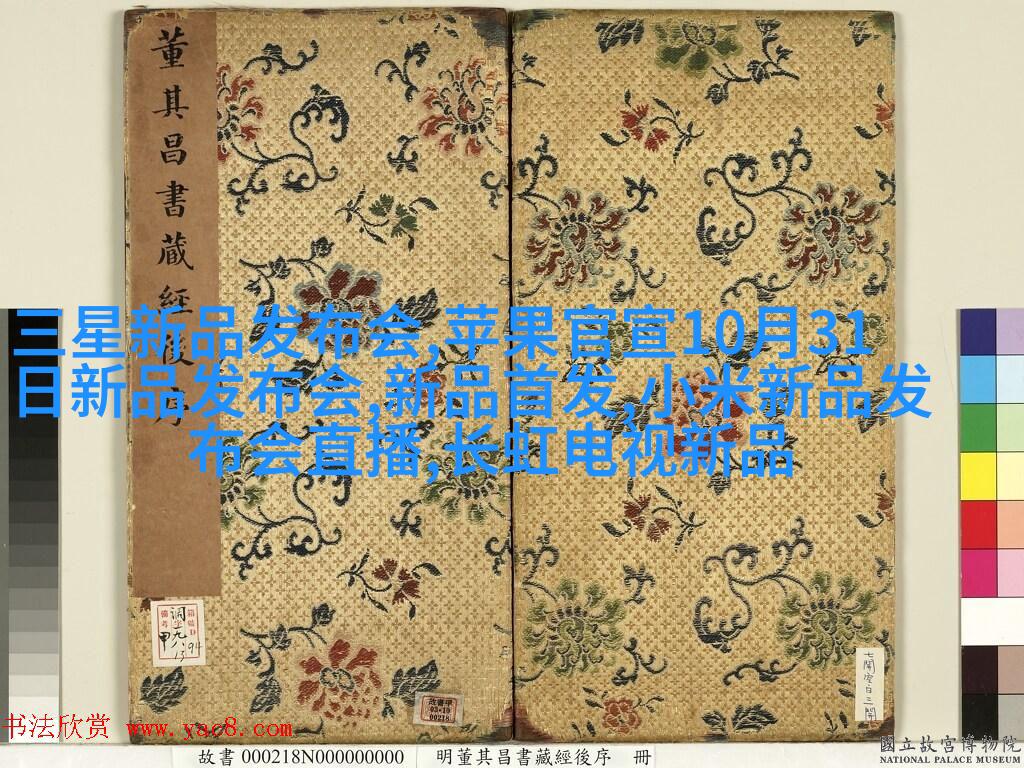 董其昌書藏經後序
三星新品发布会,苹果官宣10月31
日新品发布会,新品首发,小米新品发
布会直播,长虹电视新品
故書甲
03-10
00218
七開空白三開
书法欣赏 www.yac8.com
故書 000218N000000000
明董其昌書藏經後序 冊
國立故宮博物院
NATIONAL PALACE MUSEUM